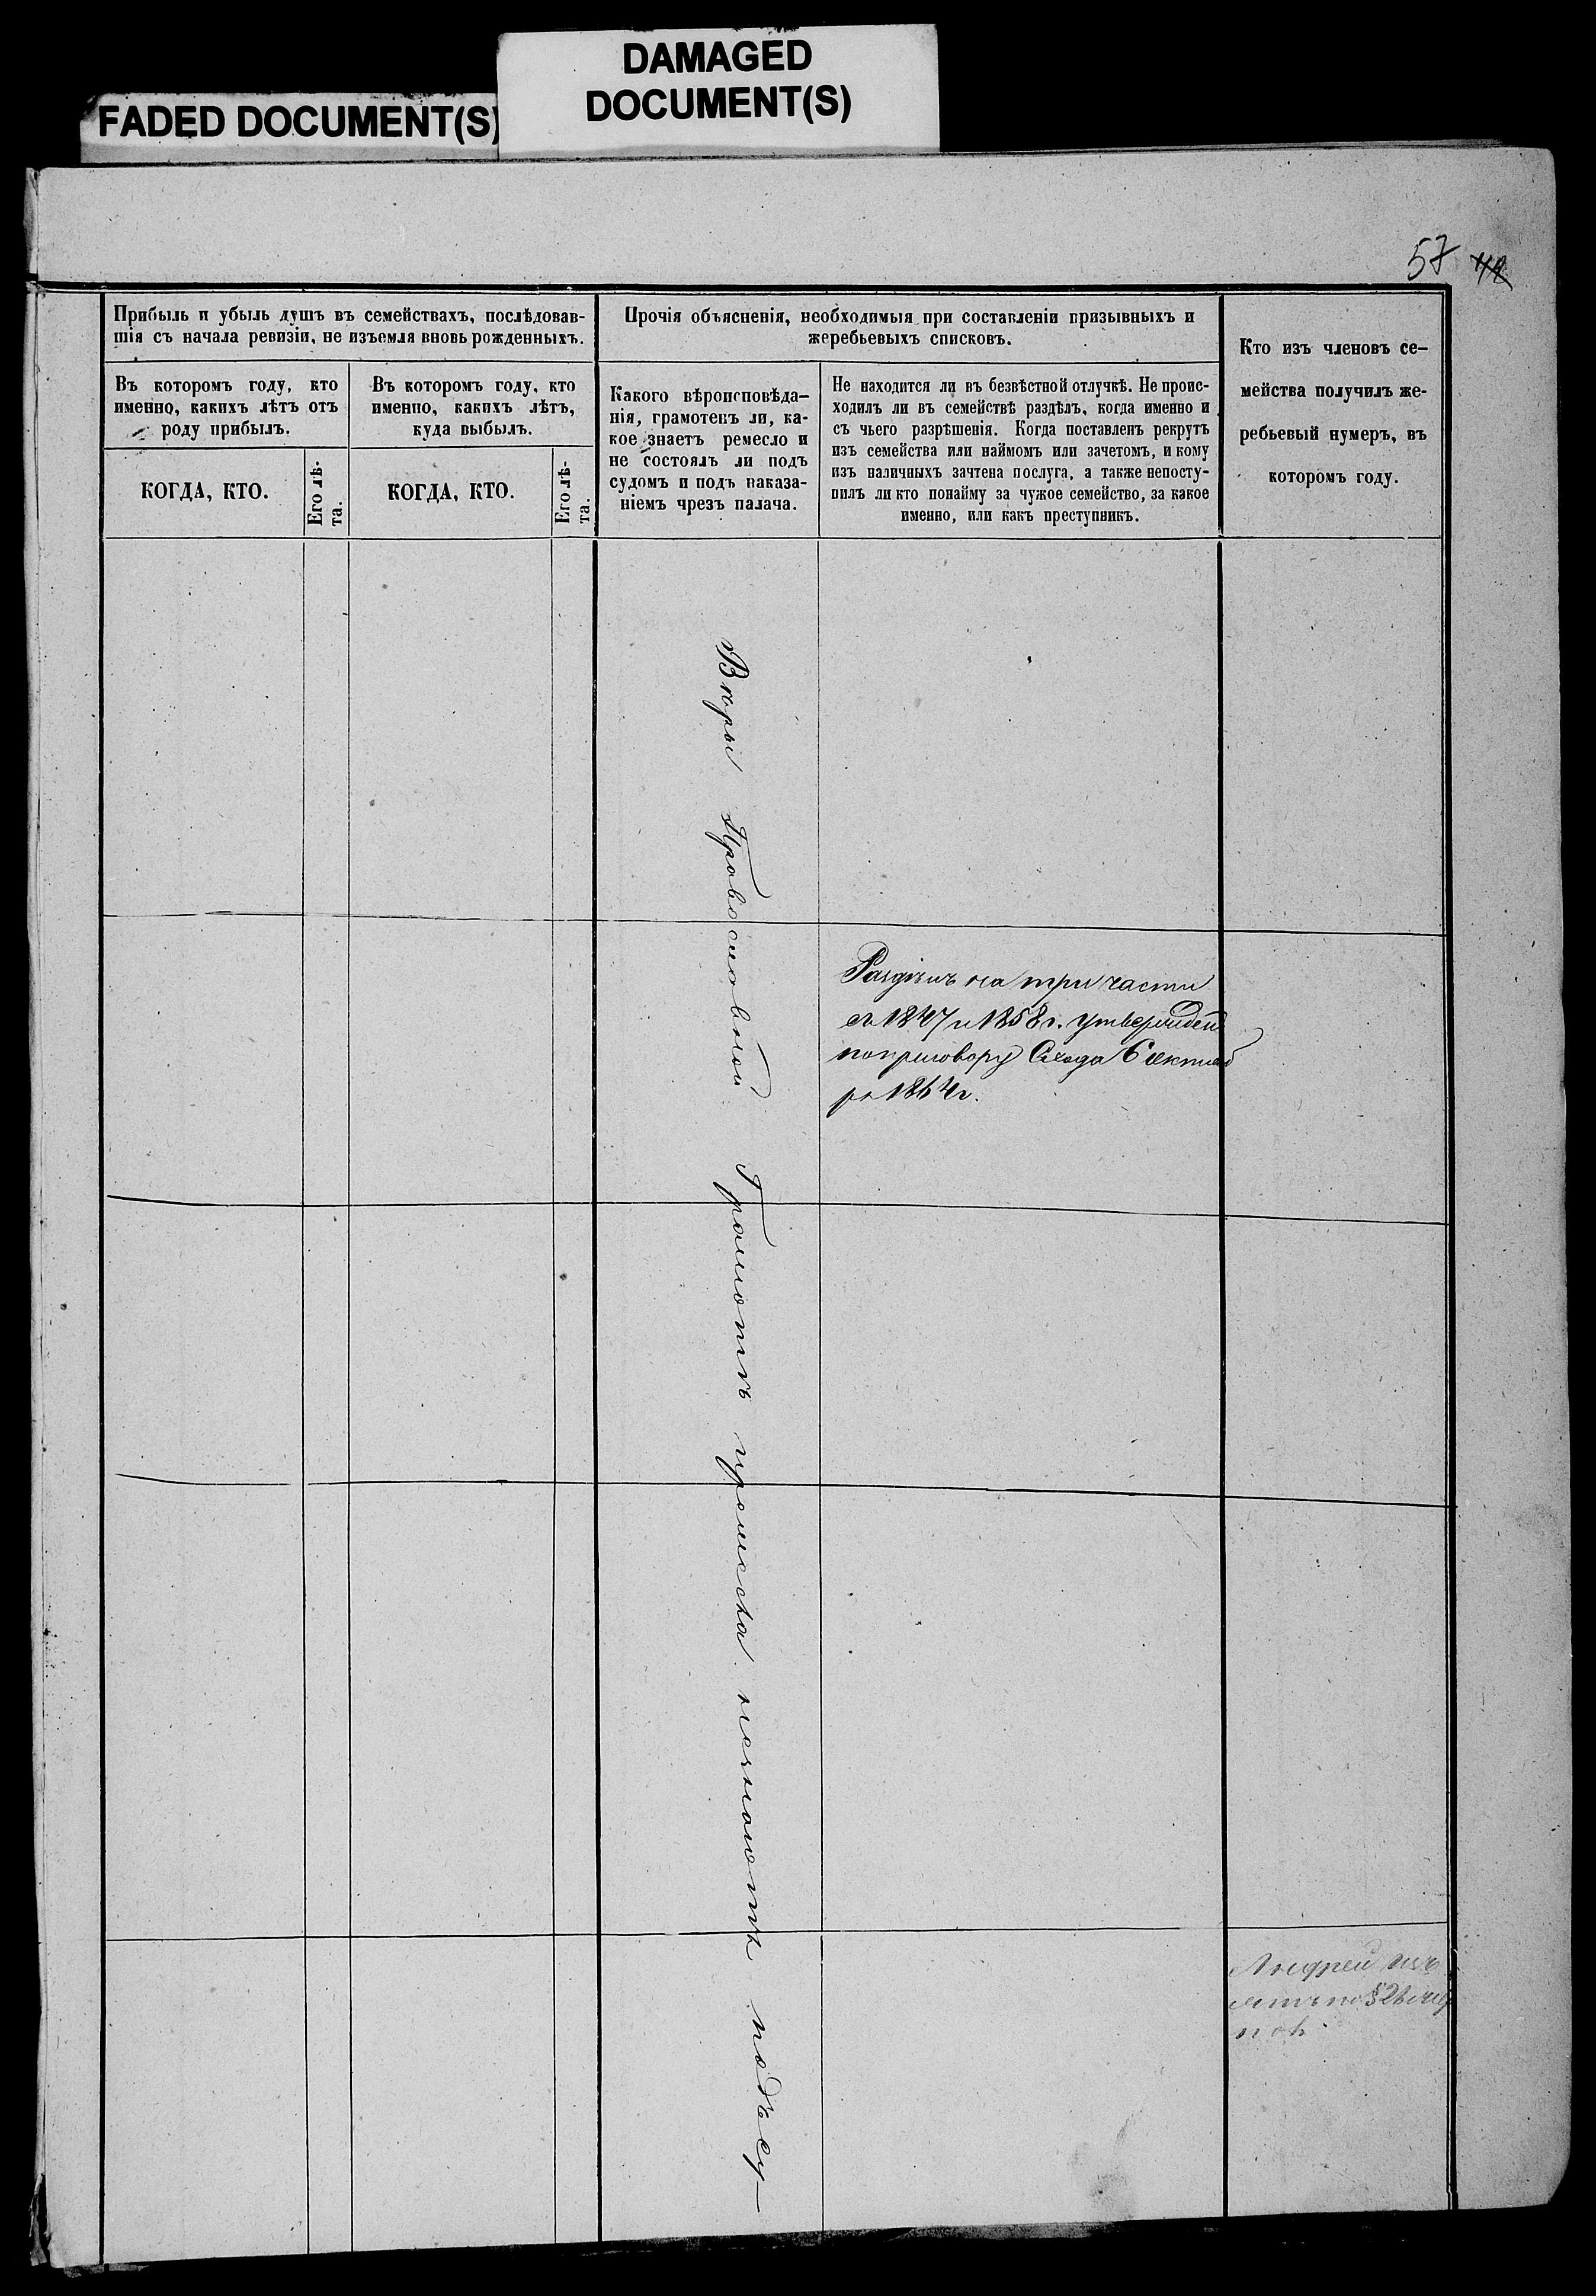 DAMAGED
DOCUMENT(S)
FADED DOCUMENT(S)
57 42
Прибыль и убыль душъ въ семействахъ, послѣдовав-
шія съ начала ревизіи, не изъемля вновь рожденныхъ.
Прочія объясненія, необходимыя при составленіи призывныхъ и
жеребьевыхъ списковъ.
Кто изъ членовъ се-
мейства получилъ же-
ребьевый нумеръ, въ
которомъ году.
Въ которомъ году, кто
именно, какихъ лѣтъ отъ
роду прибылъ.
Въ которомъ году, кто
именно, какихъ лѣтъ,
куда выбылъ.
Какого вѣроисповѣда-
нія, грамотенъ ли, ка-
кое знаетъ ремесло и
не состоялъ ли подъ
судомъ и подъ наказа-
ніемъ чрезъ палача.
Не находится ли въ безвѣстной отлучкѣ. Не проис-
ходилъ ли въ семействѣ раздѣлъ, когда именно и
съ чьего разрѣшенія. Когда поставленъ рекрутъ
изъ семейства или наймомъ или зачетомъ, и кому
изъ наличныхъ зачтена послуга, а также непосту-
пилъ ли кто понайму за чужое семейство, за какое
именно, или какъ преступникъ.
КОГДА, КТО.
Его лѣ-
та.
КОГДА, КТО.
Его лѣ-
та.
Вѣры Православной Грамотѣ ремесла подъ су-
на три части
съ 1847 и 1858 г. утвержден
по приговору Схода 6 октяб
ря 1864 г.
Андрей